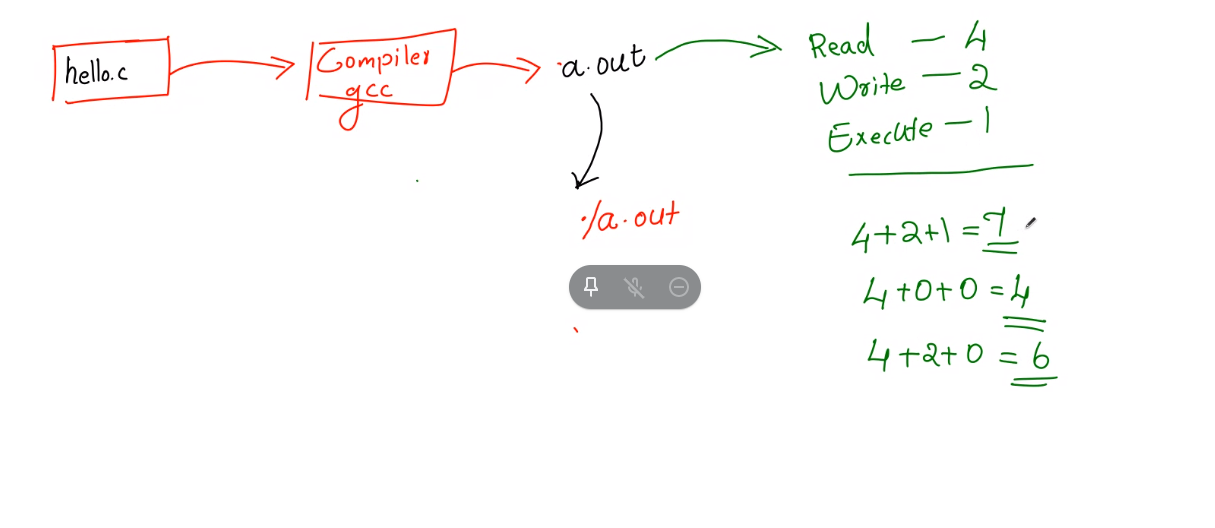 hello.c
Compiler
gcc
a.out
./a.out
Read — 4
Write — 2
Execute — 1
4+2+1 = 7
4+0+0 = 4
4+2+0 = 6